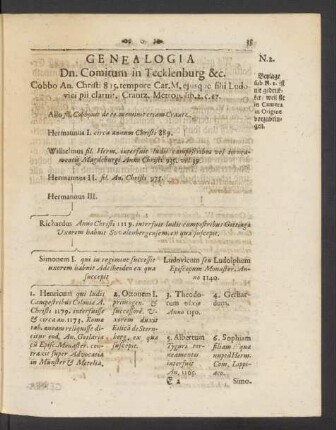 38
GENEALOGIA
Dn. Comitum in Tecklenburg &c.
N. 2.
Cobbo An. Christi 815. tempore Car. M. ejusque filii Ludo-
vici pii claruit. Crantz. Metrop. lib. 2. c. 27.
Beylage
sub N. 2. ist
nit gedruk-
ket weil sie
in Camera
in Origine
Alii post Cobbonis de eo nomine etiam Crantz.
Hermannus I. circa annum Christi 889.
Wilhelmus fil. Herm. interfuit ludis campestribus vel
Magdeburgi Anno Christi 935. vel 39.
Hermannus II. fil. An. Christi 975.
Hermannus III.
Richardus Anno Christi 1119. interfuit ludis campestribus Gottingæ
Uxorem habuit Swalenbergensem, ex qua suscepit.
Simonem I. qui in regimine successit
uxorem habuit Adelheiden ex qua
suscepit
Ludovicum seu Ludolphum
Episcopum Monaster. An-
no 1140.
1. Henricum qui ludis
Campestribus Coloniæ A.
Christi 1179. interfuisse
& circa an. 1174. Roma
rab. autem reliquisse di-
citur eod. An. Goslaria
cum Episc. Monaster. con-
traxit super Advocatia
in Münster & Metelia,
2. Ottonem I.
primogen. &
successord. U-
xorem duxit
Editâ de Stern-
berg, ex qua
suscepit.
3. Theodo-
rum obiit
Anno 1190.
4. Gerhar-
dum.
5. Albertum
An. 1165.
6. Sophiam
filiam quæ
nupsit Herm.
Com. Lippiæ.
E 2
Simo.